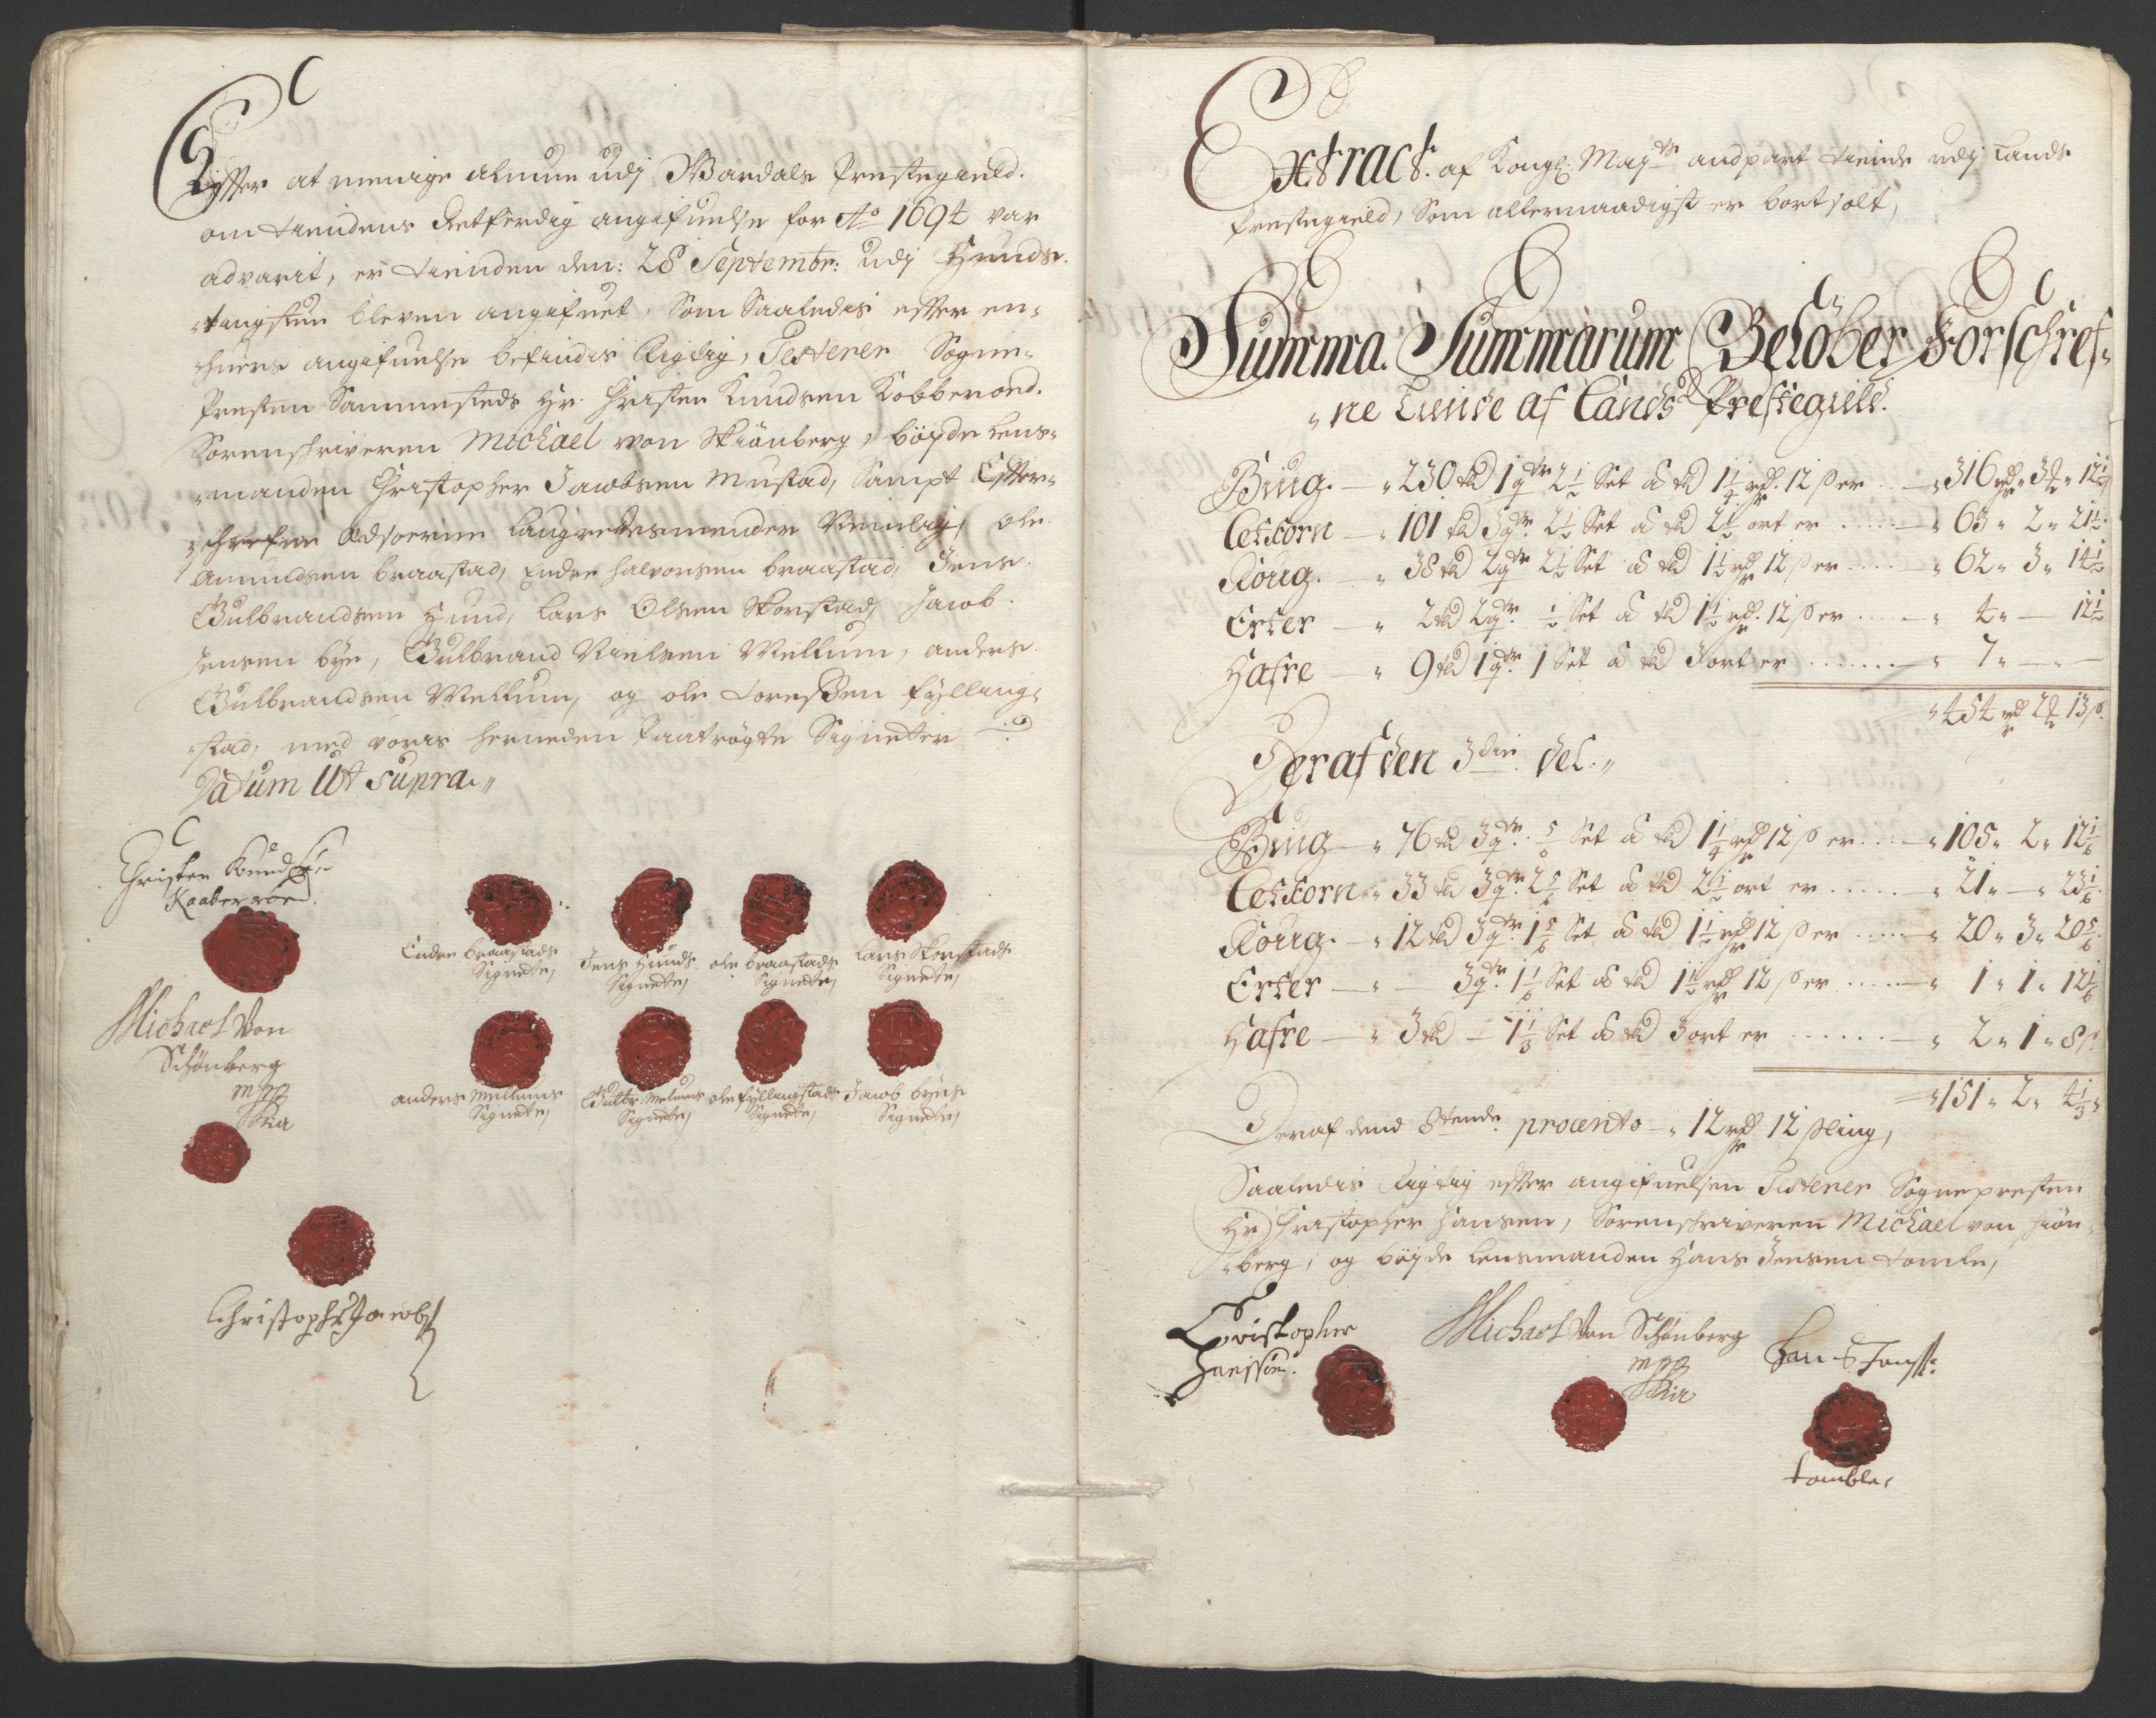 Effter at menige almue udj Wardals Prestegield.
om tiendens Retferdig angifuelse for Ao 1694 var
advarit, er tienden den: 28 Septembr: udj Hunds
tingstue bleven angifuet, Som Saaledis effter en-
huers angifuelse befindis Rigtig, Testerer Sogne-
Presten Sammesteds Hr. Christen Knudsen Kobberoed.
Sorenskriveren Michael von Skiönberg, böyde Lens-
manden Christopher Jacobsen Mustad, Sampt Effter-
schrefne Edsoerne Laugrettesmender Nemblig, Ole
Amundsen braastad, Endre halvorsen braastad, Jens
Gulbrandsen Hund, Lars Olsen Skorstad, Jacob
Jensen bye, Gulbrand Nielsen Mellum, anders
Gulbrandsen Mellum, og ole Toresen fylling-
stad, med voris herneden Paatrögte Signetter
Datum Ut supra.
Christen Knudsen
Kaaberroed.
Endre braastads
Signete,
Jens Hunds
Signete,
ole braastads
Signete,
Lars Skorstads
Signete,
Michael Von
Schönberg
mpp
anders Mellums
Signete,
Gulbr: Melums
Signete,
ole fyllingstads
Signete,
Jacob byes
Signete,
Christopher Jacobs
Extract. af Kongl: Mayts andpart tiende udj Lands
Prestegield, Som allernaadigst er bortsolt,
Summa Summarum Belöber Forschref-
ne Tiende af Lands Prestegield.
Biug. — 230 td 1 qtr 2 1/2 Set â td 1 1/4 rdr. 12 s er — 316 rdr 3 12 1/2
Letkorn — 101 td 3 qtr 2 1/2 Set â td 2 1/2 ort er — 63 " 2 " 21 1/2
Roug. — 38 td 2 qtr 2 1/2 Set â td 1 1/2 rdr 12 s er — 62 " 3 " 14 1/2
Erter — 2 td 2 qtr 1/2 Set â td 1 1/2 rdr. 12 s er — 4 " — 12 1/2
Hafre — 9 td 1 qtr 1 Set â td 3 ort er — 7 " — " —
454 rdr 2 13 s.
Deraf den 3die del.
Biug — 76 td 3 qtr. 5/6 Set â td 1 1/4 rdr 12 s er — 105 " 2 " 12 1/6
Letkorn " 33 td 3 qtr 2 5/6 Set â td 2 1/2 ort er — 21 " — " 23 1/6
Roug. — 12 td 3 qtr 1 5/6 Set â td 1 1/2 rdr 12 s er — 20 " 3 " 20 5/6
Erter — 3 qtr. 1 1/6 Set â td 1 1/2 rdr 12 s er — 1 " 1 " 12 1/6
Hafre — 3 td — 1 1/3 Set â td 3 ort er — 2 " 1 " 8 s
151 " 2 " 4 1/3
Deraf dend 8tende procento — 12 rdr 12 sling,
Saaledis Rigtig effter angifuelsen Testerer Sognepresten
Hr Christopher Hansen, Sorenskriveren Michael von skiön-
berg, og böyde Lensmanden Hans Jensen tomle,
Christopher
Hanssen.
Michael Von Schönberg
mpp
Hans Jenss:
tomble